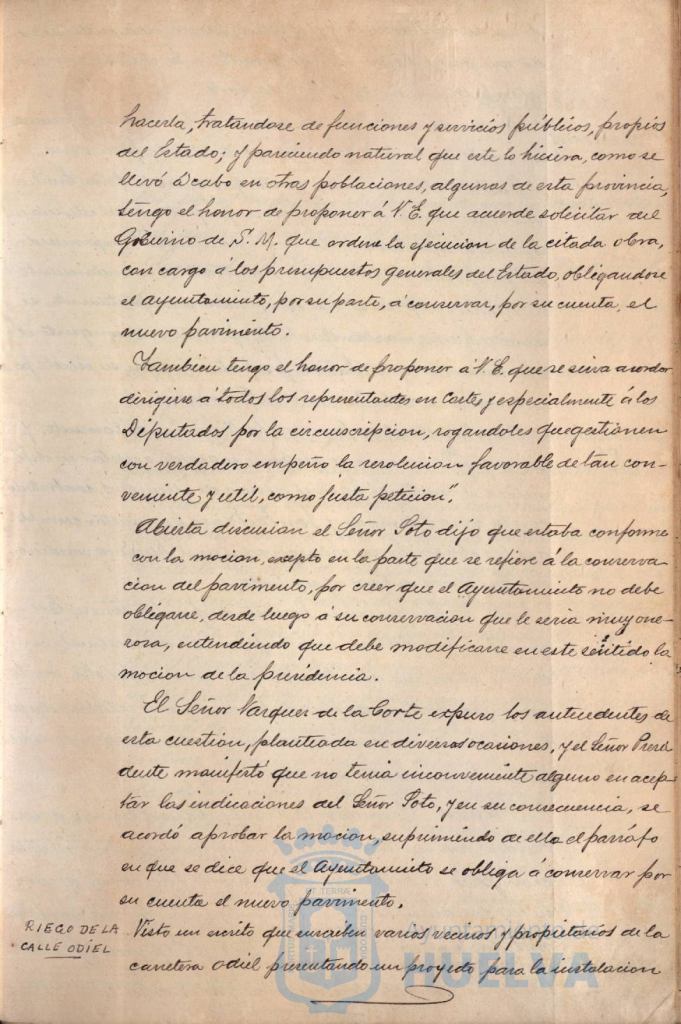 hacerla, tratandose de funciones y servicios públicos, propios
del Estado; y pareciendo natural que este lo hiciera, como se
llevó á cabo en otras poblaciones, algunas de esta provincia,
tengo el honor de proponer á V. E. que acuerde solicitar del
Gobierno de S. M. que ordene la ejecucion de la citada obra,
con cargo á los presupuestos generales del Estado, obligandose
el Ayuntamiento, por su parte, á conservar, por su cuenta, el
nuevo pavimento.
Tambien tengo el honor de proponer á V. E. que se sirva acordar
dirigirse á todos los representantes en Cortes y especialmente á los
Diputados por la circunscripcion, rogandoles que gestionen
con verdadero empeño la resolucion favorable de tan con-
veniente y util, como justa peticion".
Abierta discusion el Señor Soto dijo que estaba conforme
con la mocion, excepto en la parte que se refiere á la conserva-
cion del pavimento, por creer que el Ayuntamiento no debe
obligarse, desde luego á su conservacion que le seria muy one-
rosa, entendiendo que debe modificarse en este sentido la
mocion de la presidencia.
El Señor Vazquez de la Corte expuso los antecedentes de
esta cuestion, planteada en diversas ocasiones, y el Señor Presi
dente manifestó que no tenia inconveniente alguno en acep-
tar las indicaciones del Señor Soto, y en su consecuencia, se
acordó aprobar la mocion, suprimiendo de ella el parrafo
en que se dice que el Ayuntamiento se obliga á conservar por
su cuenta el nuevo pavimento.
RIEGO DE LA
CALLE ODIEL
Visto un escrito que suscriben varios vecinos y propietarios de la
carretera Odiel presentando un proyecto para la instalacion
Ayuntamiento de
HUELVA